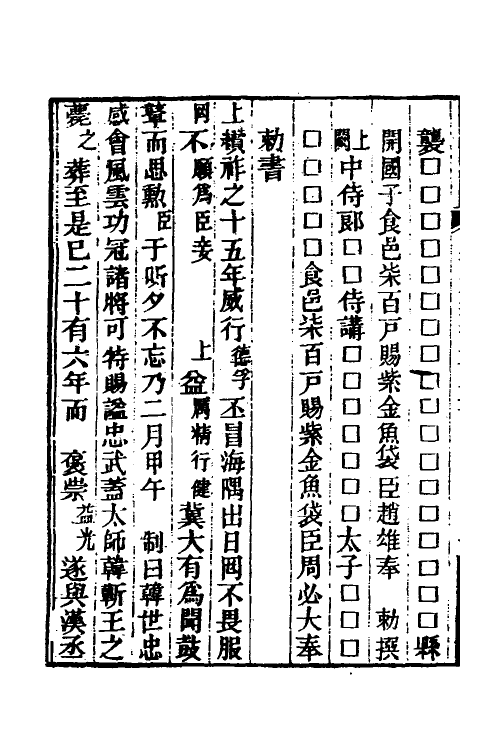 襲□□□□□□□□□□□□□□□□□□縣
開國子食邑柒百戸賜紫金魚袋臣趙雄奉　勅撰
上闕中侍郎□□侍講□□□□□□□太子□□□
□□□□□食邑柒百戸賜紫金魚袋臣周必大奉
勅書
上纘祚之十五年威行德孚丕冒海隅出日罔不畏服
罔不願爲臣妾　上益厲精行健冀大有爲聞鼓
鼙而思勲臣于昕夕不忘乃二月甲午　制曰韓世忠
感會風雲功冠諸將可特賜諡忠武蓋太師韓蘄王之
薨之葬至是已二十有六年而　褒崇益光遂與漢丞